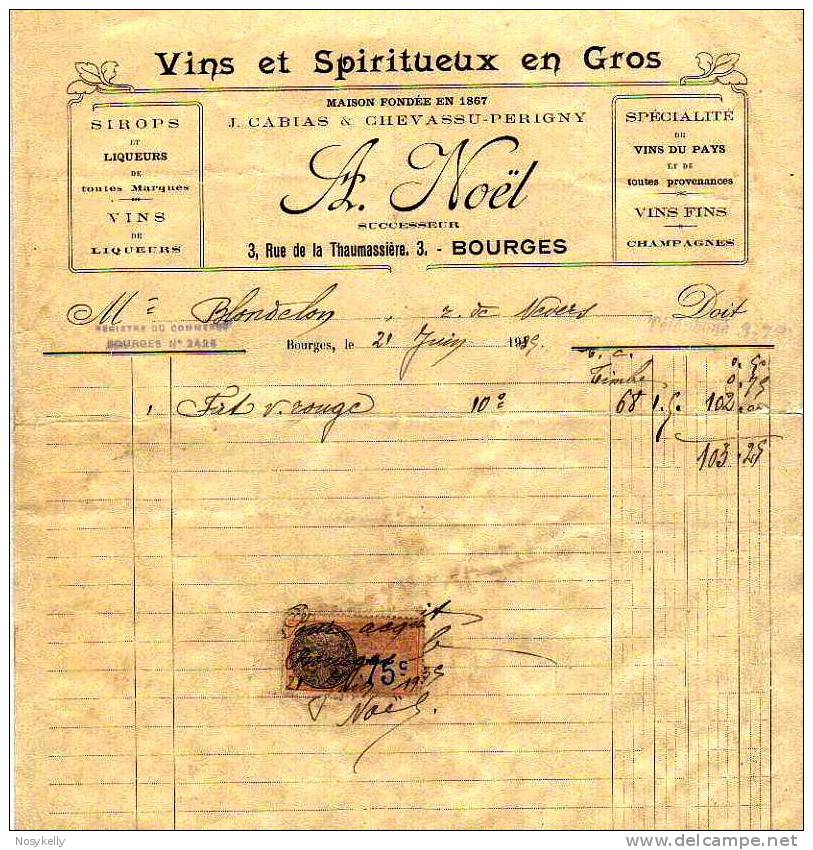 Vins et Spiritueux en Gros
MAISON FONDÉE EN 1867
J. CABIAS & CHEVASSU-PERIGNY
A. Noël
SUCCESSEUR
3, Rue de la Thaumassière. 3. - BOURGES
SIROPS
ET
LIQUEURS
DE
toutes Marques
VINS
DE
LIQUEURS
SPÉCIALITÉ
DE
VINS DU PAYS
ET DE
toutes provenances
VINS FINS
CHAMPAGNES
M Blondelon, r. de Nevers Doit
REGISTRE DU COMMERCE
BOURGES N° 2424
Téléphone
Bourges, le 21 Juin 1935.
Timbre 0.75
1 Frt v. rouge 10° 68 1.5. 102.00
103.25
Pour acquit
Bourges le
21 Juin 1935
75c
Noël.
Nosykelly
delcampe.net